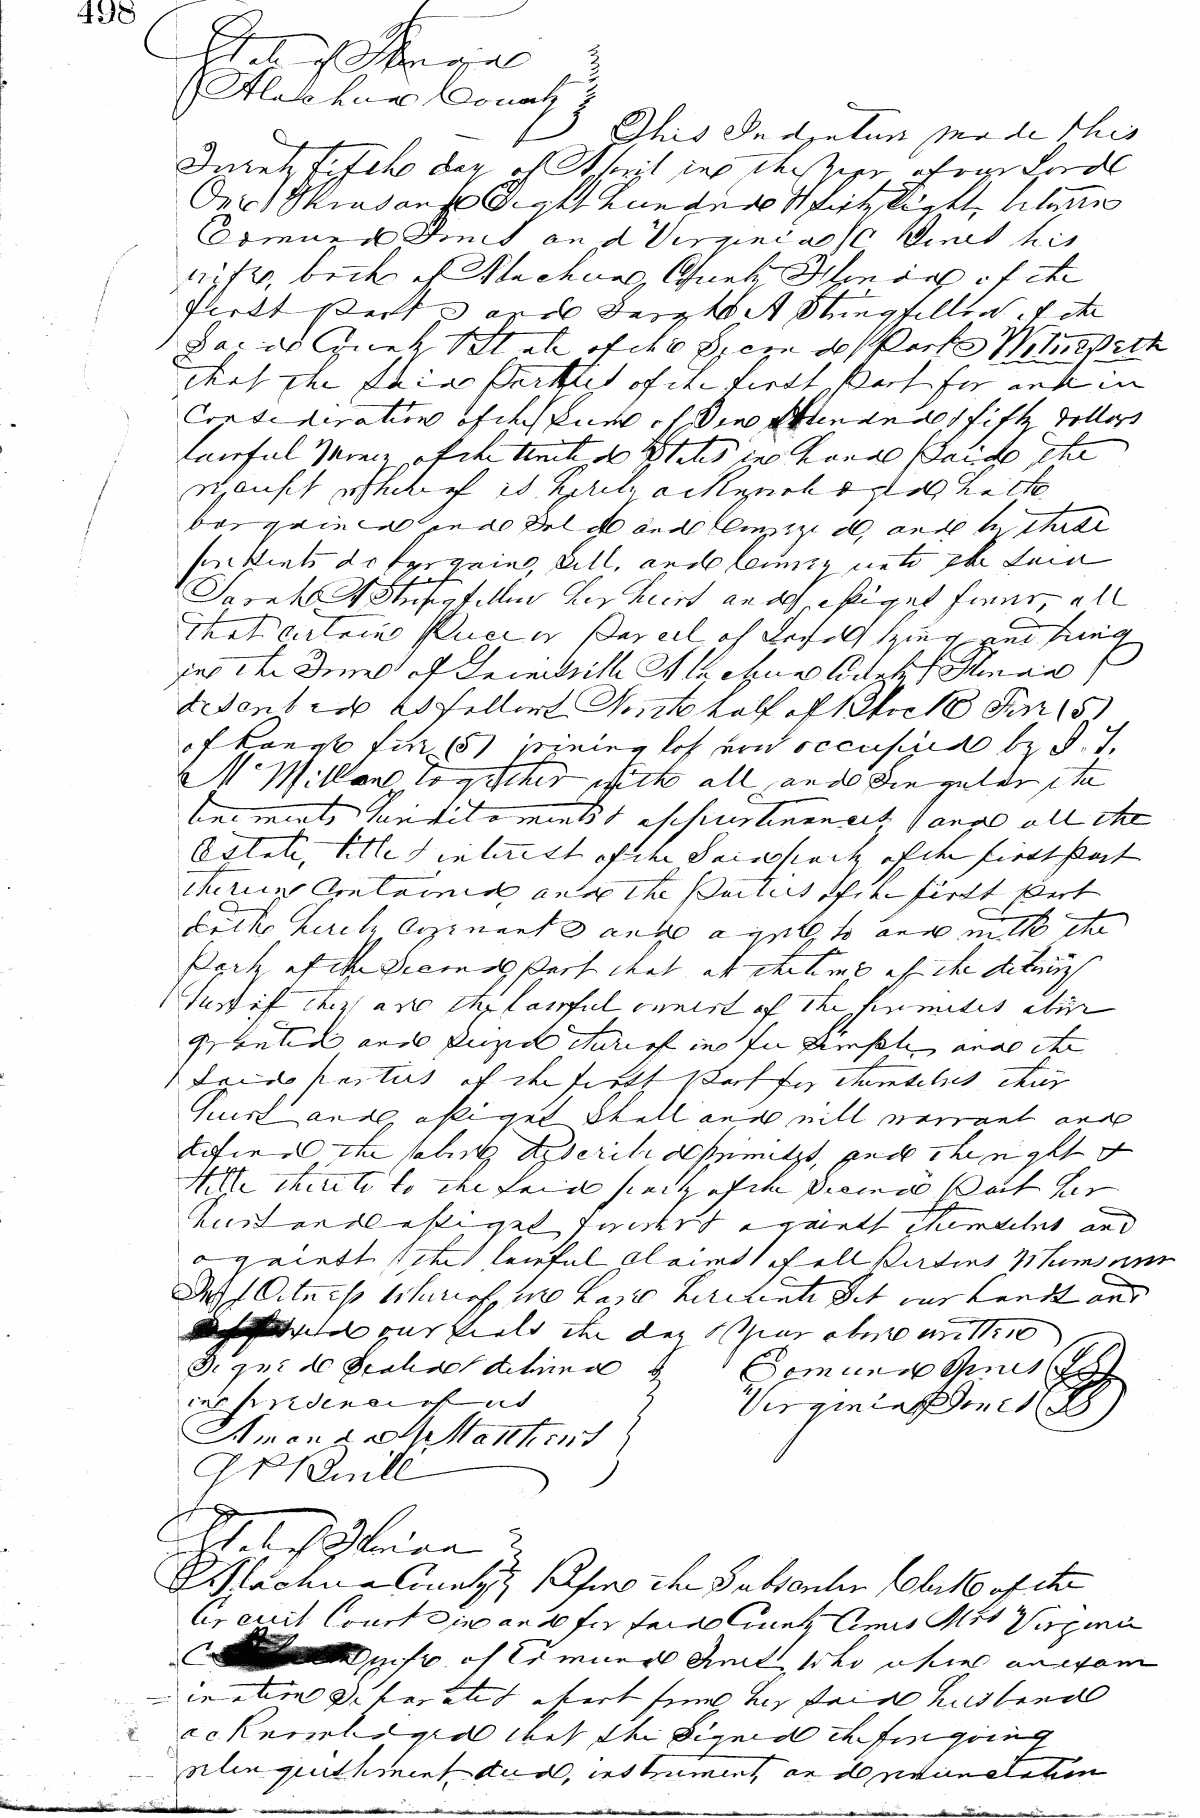 498
State of Florida
Alachua County
This Indenture made this
Twenty fifth day of April in the year of our Lord
One Thousand Eight hundred & fifty Eight, between
Edmund Jones and Virginia C Jones his
wife, both of Alachua County Florida of the
first part and Sarah A Stringfellow of the
Said County & State of the Second Part Witnesseth
that the Said Parties of the first part for and in
Consideration of the Sum of One Hundred & fifty dollars
lawful Money of the United States in hand Paid the
receipt whereof is hereby acknowledged hath
bargained and Sold and Conveyed, and by these
presents do bargain, Sell, and Convey unto the Said
Sarah A Stringfellow her heirs and assigns forever, all
that certain Piece or Parcel of Land lying and being
in the Town of Gainesville Alachua County Florida
described as follows North half of Block Five (5)
of Range five (5) joining lot now occupied by
McMillan together with all and Singular the
tenements hereditaments & appurtenances, and all the
Estate, title & interest of the Said party of the first Part
therein Contained, and the Parties of the first Part
doth hereby Covenant and agree to and with the
Party of the Second Part that at the time of the delivery
hereof they are the lawful owners of the premises above
granted and Seized thereof in fee Simple, and the
Said parties of the first Part for themselves their
heirs and assigns Shall and will warrant and
defend the above described premises, and the right &
title thereto to the Said party of the Second Part her
heirs and assigns forever & against themselves and
against the lawful claims of all Persons Whomsoever
In Witness Whereof we have hereunto Set our hands and
our Seals the day & Year above written
Signed Sealed & delivered Edmund Jones
in presence of us Virginia Jones
Amanda Matthews
State of Florida
Alachua County Before the Subscriber Clerk of the
Circuit Court in and for Said County Comes Mrs Virginia
C wife of Edmund Jones, who upon an exam
ination Separate & apart from her Said husband
acknowledged that She Signed the foregoing
relinquishment, deed, instrument, and renunciation